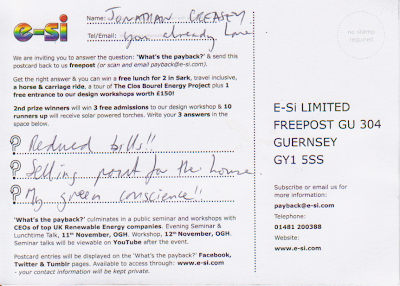 e-si
Name: JONATHAN CREASEY
Tel/Email: you already have
no stamp required
We are inviting you to answer the question: 'What's the payback?' & send this
postcard back to us freepost (or scan and email payback@e-si.com).
Get the right answer & you can win a free lunch for 2 in Sark, travel inclusive,
a horse & carriage ride, a tour of The Clos Bourel Energy Project plus 1
free entrance to our design workshops worth £150!
2nd prize winners will win 3 free admissions to our design workshop & 10
runners up will receive solar powered torches. Write your 3 answers in the
space below.
Reduced bills!!
Selling point for the house
My green conscience!!
'What's the payback?' culminates in a public seminar and workshops with
CEOs of top UK Renewable Energy companies. Evening Seminar &
Lunchtime Talk, 11th November, OGH. Workshop, 12th November, OGH.
Seminar talks will be viewable on YouTube after the event.
Postcard entries will be displayed on the 'What's the payback?' Facebook,
Twitter & Tumblr pages. Available to access through: www.e-si.com
- your contact information will be kept private.
E-Si LIMITED
FREEPOST GU 304
GUERNSEY
GY1 5SS
Subscribe or email us for
more information:
payback@e-si.com
Telephone:
01481 200388
Website:
www.e-si.com